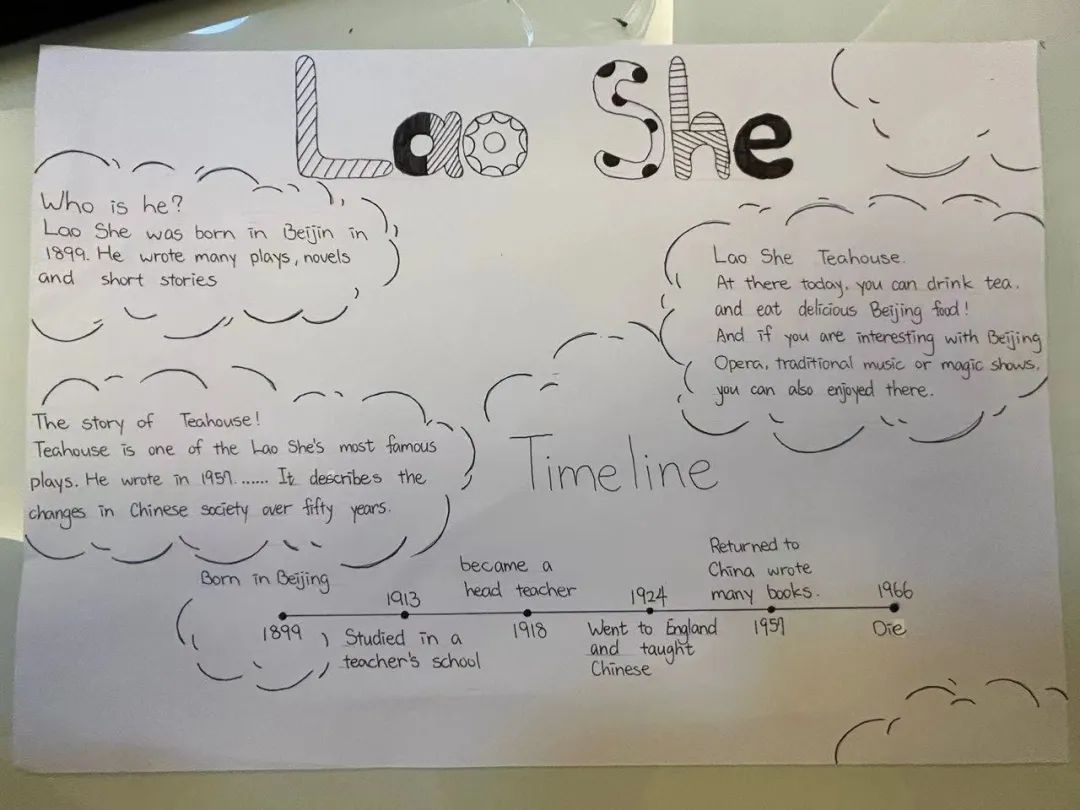 Lao She
Who is he?
Lao She was born in Beijin in
1899. He wrote many plays, novels
and short stories
Lao She Teahouse.
At there today. you can drink tea.
and eat delicious Beijing food!
And if you are interesting with Beijing
Opera, traditional music or magic shows.
you can also enjoyed there.
The story of Teahouse!
Teahouse is one of the Lao She's most famous
plays. He wrote in 1957. ...... It describes the
changes in Chinese society over fifty years.
Timeline
Born in Beijing
1899
1913
Studied in a
teacher's school
became a
head teacher
1918
1924
Went to England
and taught
Chinese
Returned to
China wrote
many books.
1957
1966
Die